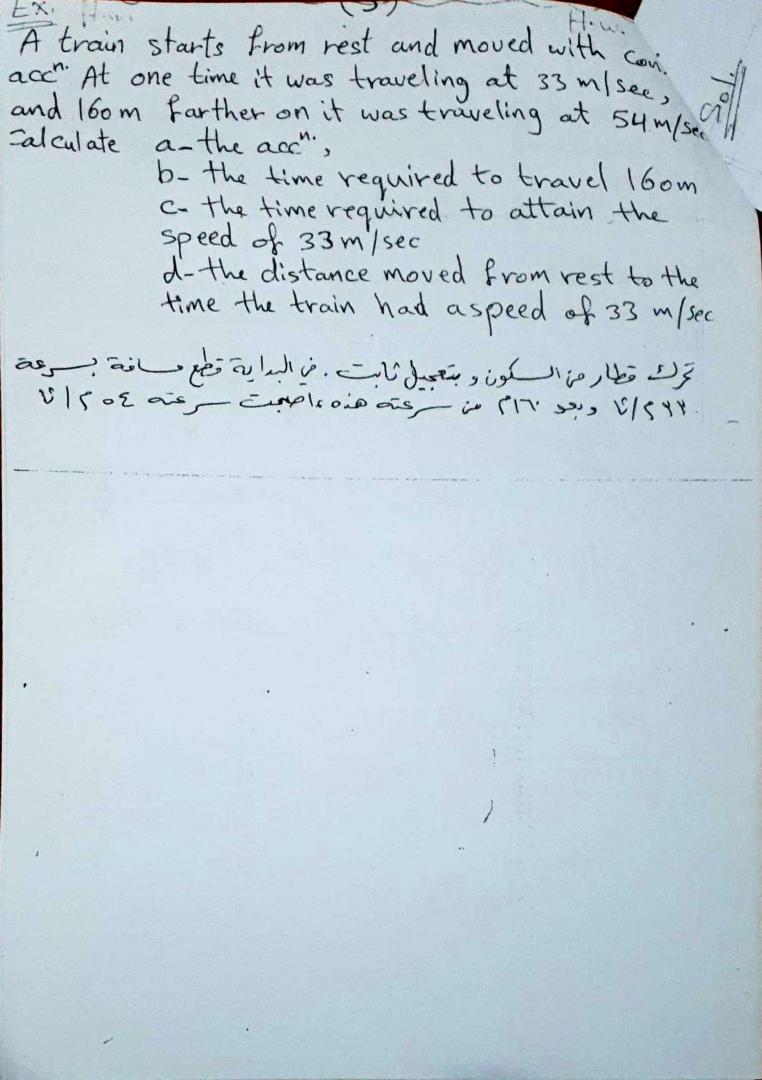 Ex.
(3)
H.w.
A train starts from rest and moved with con.
accⁿ. At one time it was traveling at 33 m/sec,
and 160m farther on it was traveling at 54m/sec
Calculate a- the accⁿ.,
b- the time required to travel 160m
c- the time required to attain the
speed of 33m/sec
d- the distance moved from rest to the
time the train had a speed of 33 m/sec
تحرك قطار من السكون و بتعجيل ثابت . في البداية قطع مسافة بسرعة
٣٣م/ثا وبعد ١٦٠م من سرعته هذه، اصبحت سرعته ٥٤م/ثا